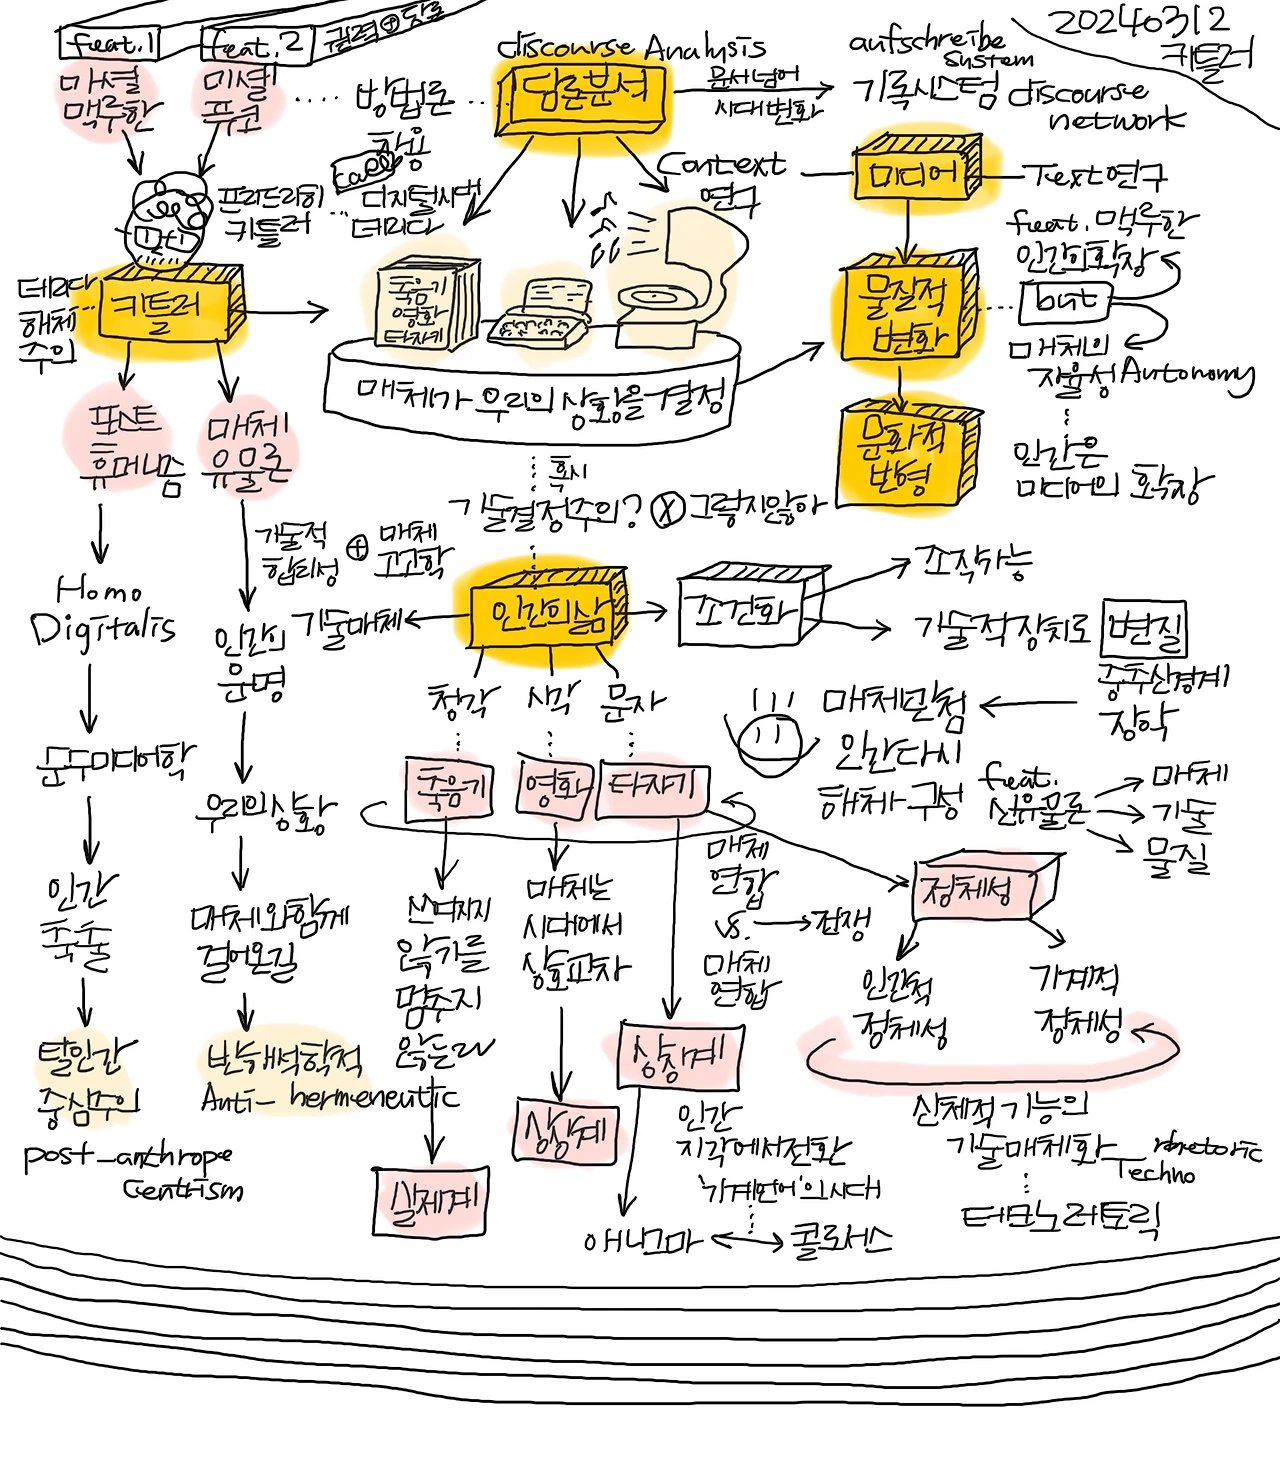 20240312
키틀러
feat.1
feat.2
권력⊕담론
마셜
맥루한
미셸
푸코
방법론
차용
discourse Analysis
담론분석
문서넘어
시대변화
aufschreibe
system
기록시스템
discourse
network
프리드리히
키틀러
called
디지털시대
데리다
Context
연구
미디어
Text연구
feat. 맥루한
인간의확장
but
매체의
자율성 Autonomy
인간은
미디어의 확장
데리다
해체
주의
키틀러
축음기
영화
타자기
매체가 우리의 상황을 결정
물질적
변화
문화적
반영
혹시
기술결정주의? ⓧ 그렇지않아
포스트
휴머니즘
매체
유물론
기술적
합리성
⊕
매체
고고학
Homo
Digitalis
인간의
운명
기술매체
인간의삶
조건화
조작가능
기술적장치로 변질
중추신경계
장악
매체만첨
인간다시
해체·구성
feat.
신유물론
매체
기술
물질
청각
시각
문자
축음기
영화
타자기
군주미디어학
우리의상황
인간
축출
매체와함께
걸어온길
악기를
멈추지
않는다
매체는
시대에서
상호교차
매체
연합
vs.
전쟁
매체
연합
정체성
인간적
정체성
기계적
정체성
탈인간
중심주의
post-anthrope
Centrism
반해석학적
Anti-hermeneutic
실제계
상상계
상징계
인간
지각에서전환
'기계언어'의시대
애니그마
콜로서스
신체적기능의
기술매체화
rhetoric
Techno
테크노레토릭